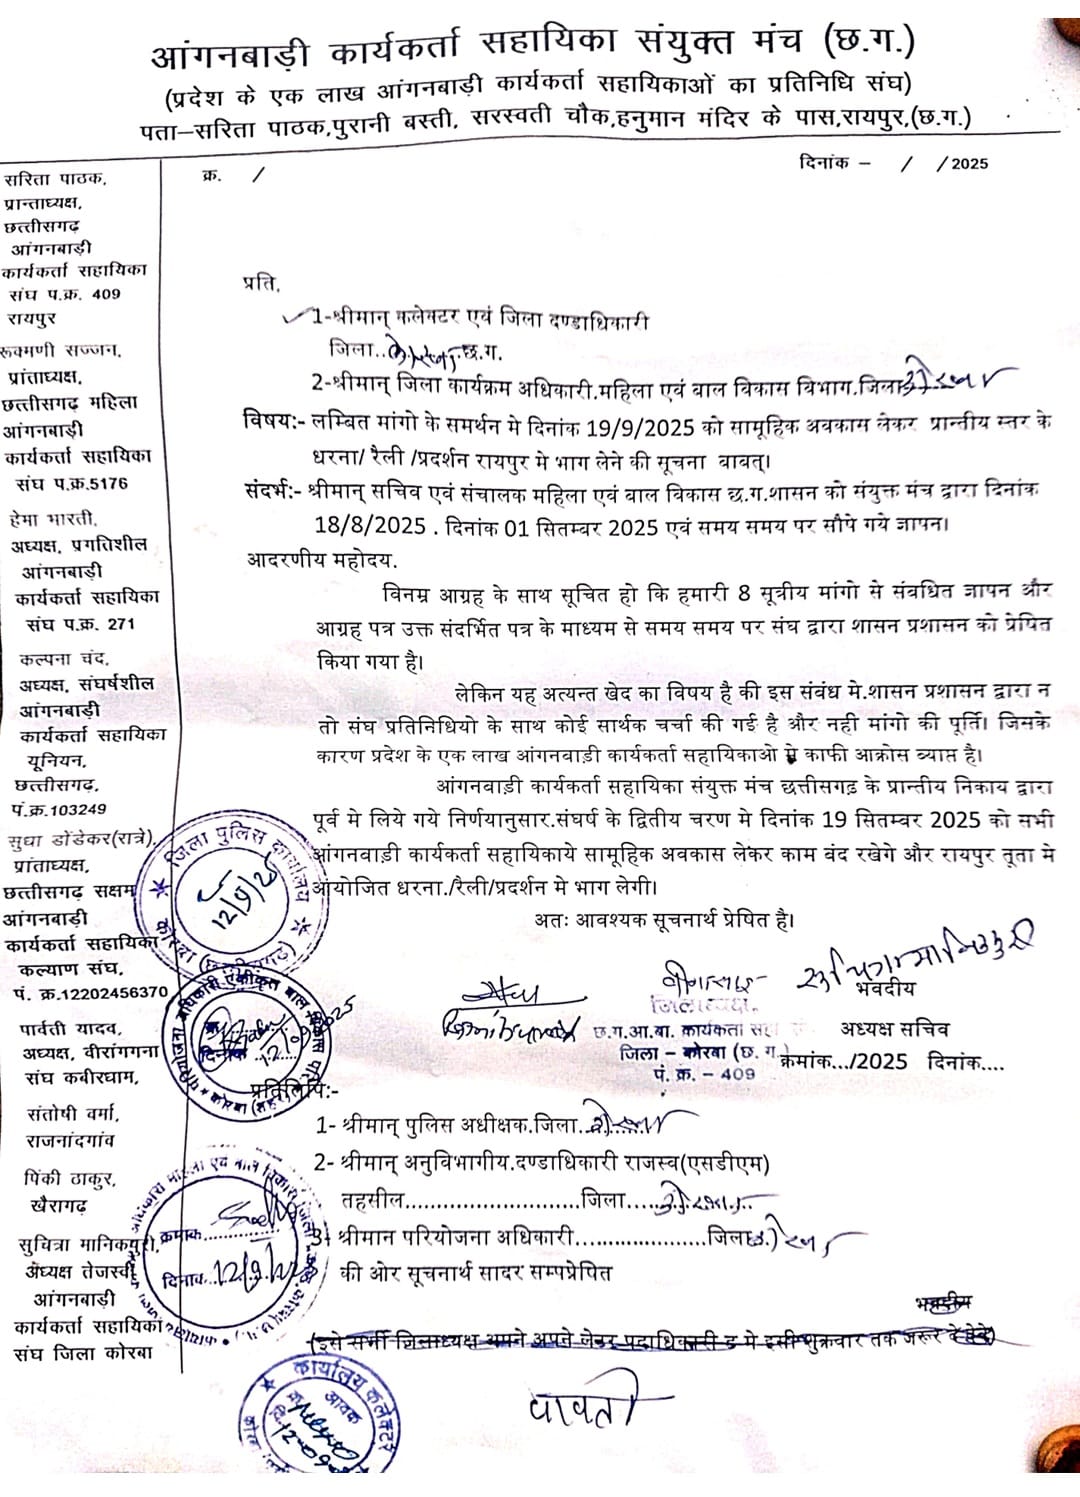 आंगनबाड़ी कार्यकर्ता सहायिका संयुक्त मंच (छ.ग.)
(प्रदेश के एक लाख आंगनबाड़ी कार्यकर्ता सहायिकाओं का प्रतिनिधि संघ)
पता–सरिता पाठक,पुरानी बस्ती, सरस्वती चौक,हनुमान मंदिर के पास,रायपुर,(छ.ग.)
क्र. /
दिनांक – / /2025
सरिता पाठक,
प्रान्ताध्यक्ष,
छत्तीसगढ़
आंगनबाड़ी
कार्यकर्ता सहायिका
संघ प.क्र. 409
रायपुर
रूक्मणी सज्जन,
प्रांताध्यक्ष,
छत्तीसगढ़ महिला
आंगनबाड़ी
कार्यकर्ता सहायिका
संघ प.क्र.5176
हेमा भारती,
अध्यक्ष, प्रगतिशील
आंगनबाड़ी
कार्यकर्ता सहायिका
संघ प.क्र. 271
कल्पना चंद,
अध्यक्ष, संघर्षशील
आंगनबाड़ी
कार्यकर्ता सहायिका
यूनियन,
छत्तीसगढ़,
पं.क्र.103249
सुधा डोंडेकर(रात्रे),
प्रांताध्यक्ष,
छत्तीसगढ़ सक्षम
आंगनबाड़ी
कार्यकर्ता सहायिका
कल्याण संघ,
पं. क्र.12202456370
पार्वती यादव,
अध्यक्ष, वीरांगना
संघ कबीरधाम,
संतोषी वर्मा,
राजनांदगांव
पिंकी ठाकुर,
खैरागढ़
सुचित्रा मानिकपुरी,
अध्यक्ष तेजस्वी
आंगनबाड़ी
कार्यकर्ता सहायिका
संघ जिला कोरबा
प्रति,
1-श्रीमान् कलेक्टर एवं जिला दण्डाधिकारी
जिला..कोरबा.छ.ग.
2-श्रीमान् जिला कार्यक्रम अधिकारी.महिला एवं बाल विकास विभाग.जिला कोरबा
विषय:- लम्बित मांगो के समर्थन मे दिनांक 19/9/2025 को सामूहिक अवकास लेकर प्रान्तीय स्तर के
धरना/ रैली /प्रदर्शन रायपुर मे भाग लेने की सूचना वावत्।
संदर्भ:- श्रीमान् सचिव एवं संचालक महिला एवं बाल विकास छ.ग.शासन को संयुक्त मंच द्वारा दिनांक
18/8/2025 . दिनांक 01 सितम्बर 2025 एवं समय समय पर सौपे गये ज्ञापन।
आदरणीय महोदय.
विनम्र आग्रह के साथ सूचित हो कि हमारी 8 सूत्रीय मांगो से संवधित ज्ञापन और
आग्रह पत्र उक्त संदर्भित पत्र के माध्यम से समय समय पर संघ द्वारा शासन प्रशासन को प्रेषित
किया गया है।
लेकिन यह अत्यन्त खेद का विषय है की इस संबंध मे.शासन प्रशासन द्वारा न
तो संघ प्रतिनिधियो के साथ कोई सार्थक चर्चा की गई है और नही मांगो की पूर्ति। जिसके
कारण प्रदेश के एक लाख आंगनवाड़ी कार्यकर्ता सहायिकाओ मे काफी आक्रोस व्याप्त है।
आंगनवाड़ी कार्यकर्ता सहायिका संयुक्त मंच छत्तीसगढ़ के प्रान्तीय निकाय द्वारा
पूर्व मे लिये गये निर्णयानुसार.संघर्ष के द्वितीय चरण मे दिनांक 19 सितम्बर 2025 को सभी
आंगनवाड़ी कार्यकर्ता सहायिकाये सामूहिक अवकास लेकर काम वंद रखेगे और रायपुर तूता मे
आयोजित धरना./रैली/प्रदर्शन मे भाग लेगी।
अतः आवश्यक सूचनार्थ प्रेषित है।
जिला पुलिस कार्यालय
कोरबा (छत्तीसगढ़)
12/9/25
वीणा साहू
जिलाध्यक्ष
छ.ग.आ.बा. कार्यकर्ता
जिला – कोरबा (छ. ग.)
पं. क्र. – 409
सुचित्रा मानिकपुरी
भवदीय
अध्यक्ष सचिव
क्रमांक.../2025 दिनांक....
प्रतिलिपि:-
1- श्रीमान् पुलिस अधीक्षक.जिला..कोरबा
2- श्रीमान् अनुविभागीय.दण्डाधिकारी राजस्व(एसडीएम)
तहसील..........................जिला....कोरबा..
3- श्रीमान परियोजना अधिकारी....................जिला कोरबा
की ओर सूचनार्थ सादर सम्प्रेषित
क्रमांक
दिनांक..12/9/25
भवदीय
(इसे सभी जिलाध्यक्ष अपने अपने लेटर पदाधिकारी मे इसी शुक्रवार तक जरूर दे देवे)
पावती
कार्यालय कलेक्टर
आवक